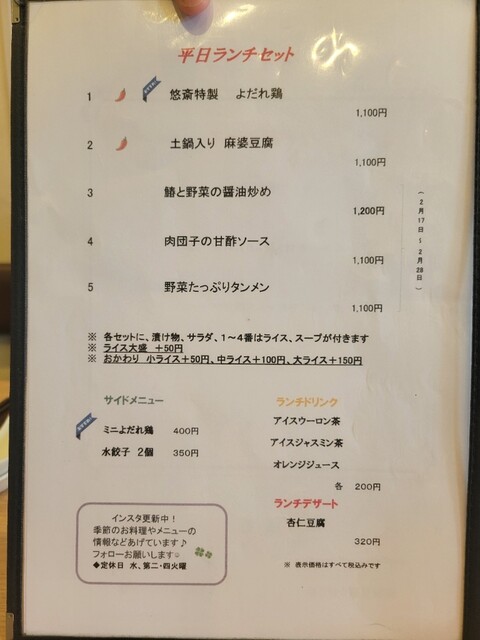 平日ランチセット
1 悠斎特製 よだれ鶏
1,100円
2 土鍋入り 麻婆豆腐
1,100円
3 鰆と野菜の醤油炒め
1,200円
4 肉団子の甘酢ソース
1,100円
5 野菜たっぷりタンメン
1,100円
(2月17日~2月28日)
※ 各セットに、漬け物、サラダ、1～4番はライス、スープが付きます
※ ライス大盛 +50円
※ おかわり 小ライス+50円、中ライス+100円、大ライス+150円
サイドメニュー
ミニよだれ鶏 400円
水餃子 2個 350円
ランチドリンク
アイスウーロン茶
アイスジャスミン茶
オレンジジュース
各 200円
ランチデザート
杏仁豆腐
320円
※ 表示価格はすべて税込みです
インスタ更新中！
季節のお料理やメニューの
情報などあげています♪
フォローお願いします☺
◆定休日 水、第二・四火曜